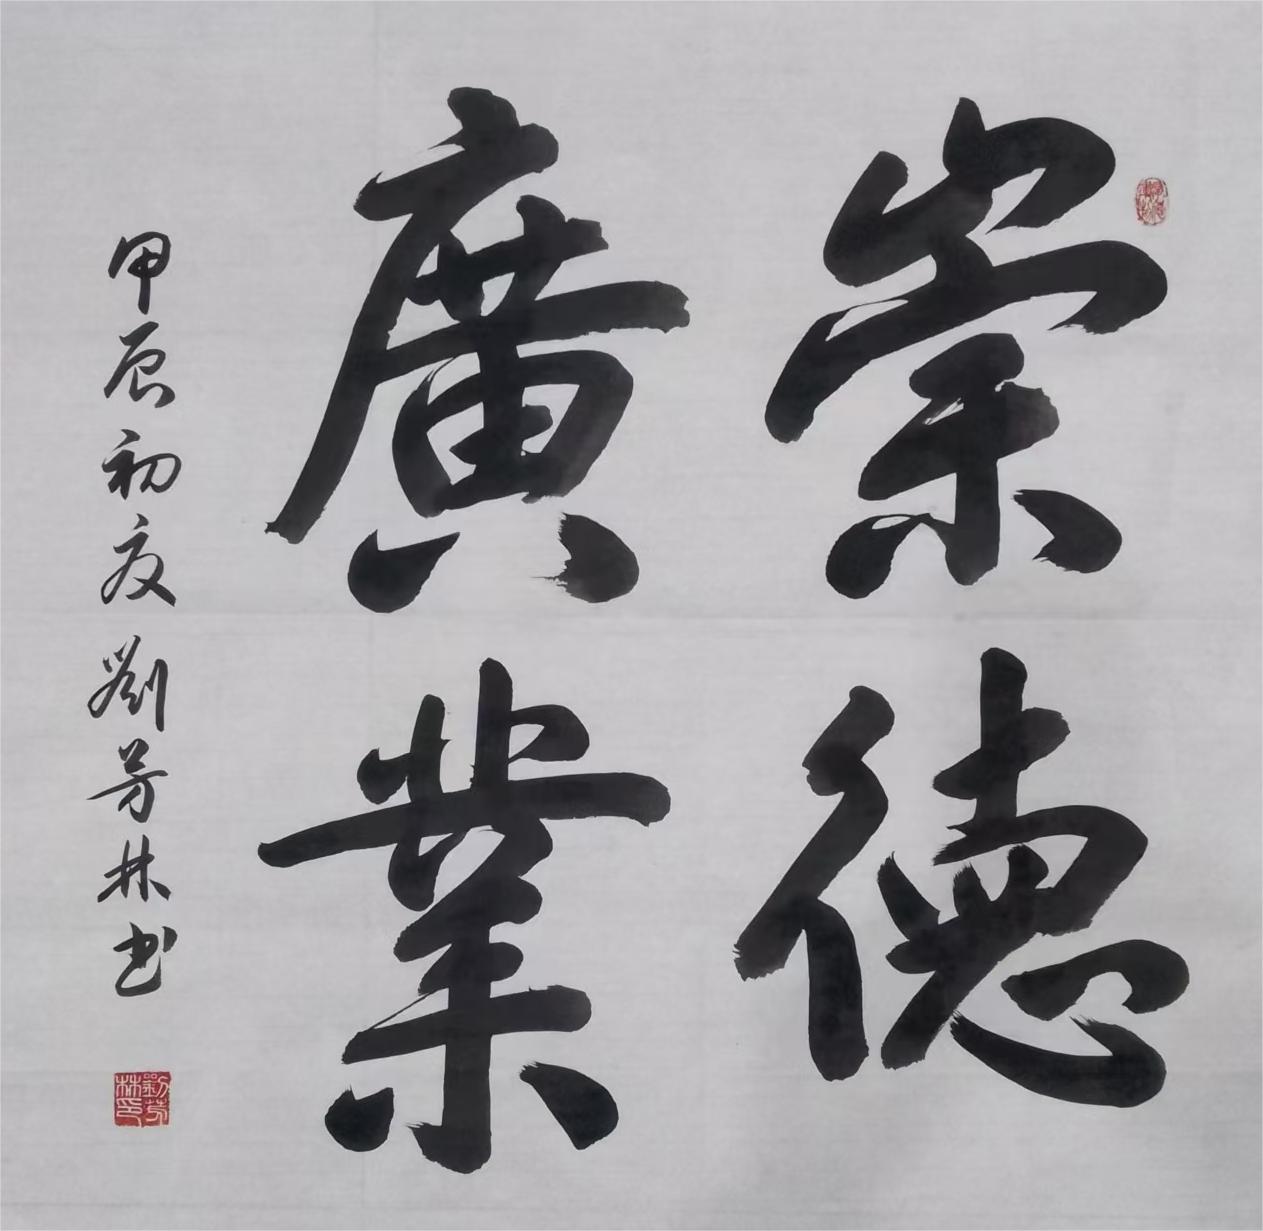 崇德
廣業
甲辰初夏劉芳林书
劉芳林印